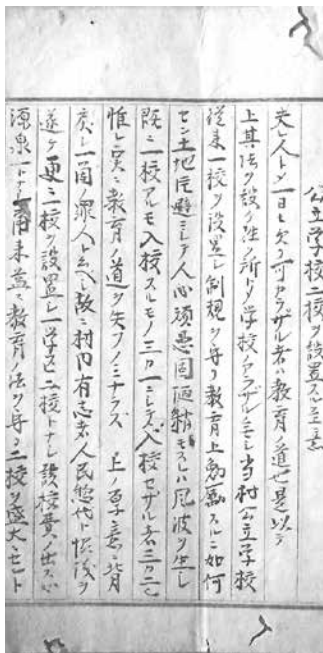 公立学校二校ヲ設置スル主意
夫レ人トシテ一日モ欠ク可カラザル者ハ教育ノ道也是以テ
上其法ヲ設ケ江ノ所トシテ学校アラザルナシ当村公立学校
従来一校ヲ設置シ制規ヲ守リ教育上勉励スルニ如何
セン土地民避ニシテ人心頑愚固陋動モスレハ風波ヲ生シ
既ニ一校アルモ入校スルモノ三分ノ一ニシテ入校セザル者三分ノ二
惟レ実ニ教育ノ道ヲ失フノミナラス上ノ旨意ニ背
戻シ一箇ノ罪人ト云ヘシ故ニ村内有志者人民惣代ト協議ヲ
遂ケ更ニ一校ヲ設置シ一学区二校トナシ設校費ノ出ス
源泉一トナシ甫来益々教育ノ法ヲ守リ二校ヲ盛大ニセント